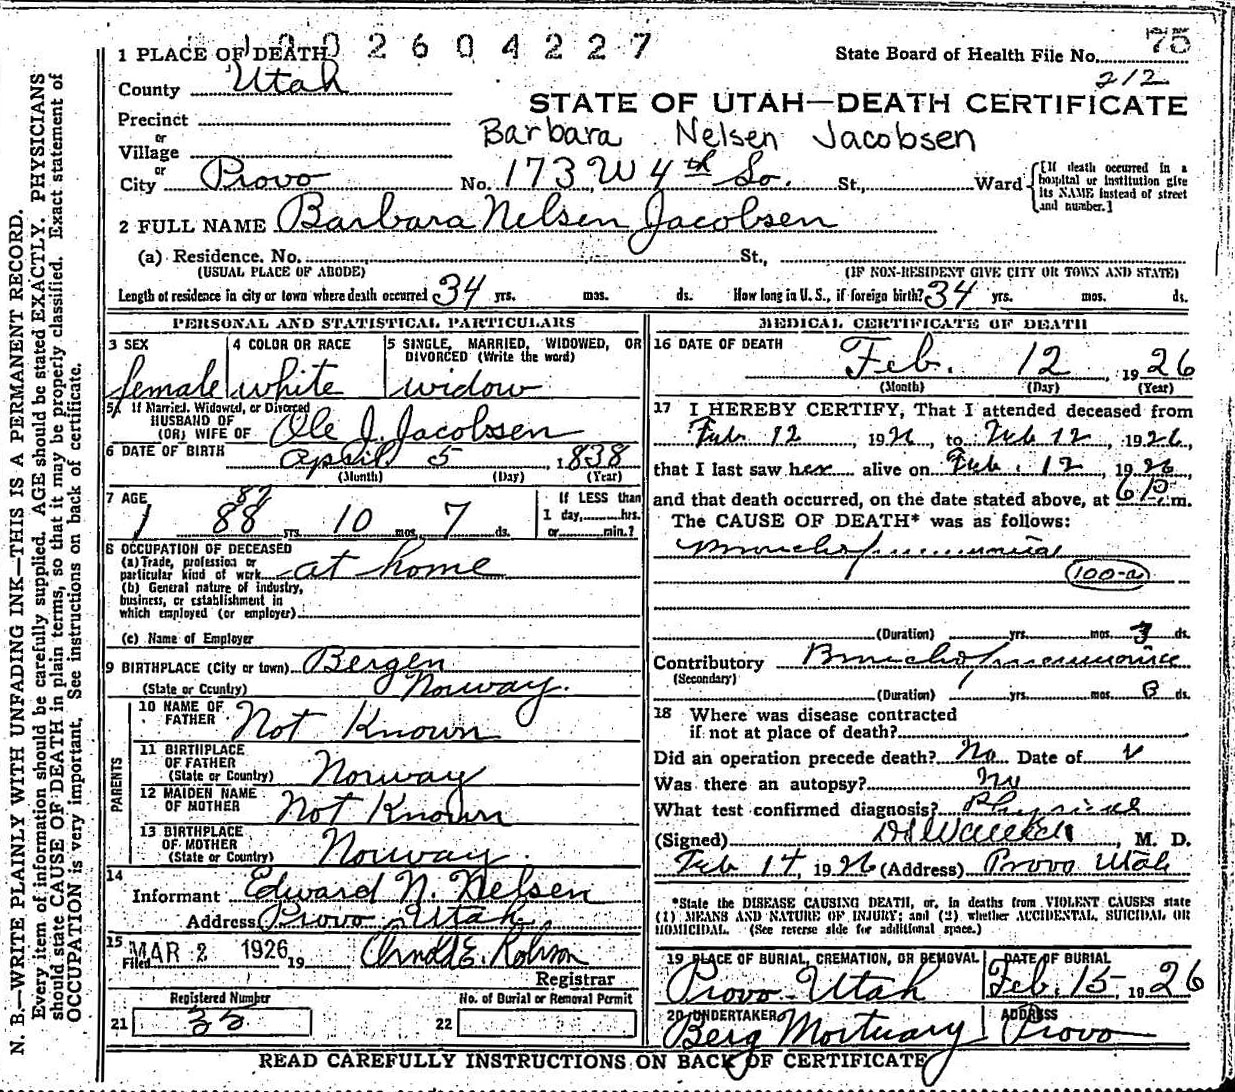 1 PLACE OF DEATH 1002604227
State Board of Health File No. 75
212
County Utah
STATE OF UTAH—DEATH CERTIFICATE
Precinct
or
Barbara Nelsen Jacobsen
Village
or
City Provo No. 173 W 4th So. St., Ward {[If death occurred in a hospital or institution give its NAME instead of street and number.]
2 FULL NAME Barbara Nelsen Jacobsen
(a) Residence. No. St.,
(USUAL PLACE OF ABODE) (IF NON-RESIDENT GIVE CITY OR TOWN AND STATE)
Length of residence in city or town where death occurred 34 yrs. mos. ds. How long in U. S., if foreign birth? 34 yrs. mos. ds.
PERSONAL AND STATISTICAL PARTICULARS
3 SEX 4 COLOR OR RACE 5 SINGLE, MARRIED, WIDOWED, OR
DIVORCED (Write the word)
female white widow
5a If Married, Widowed, or Divorced
HUSBAND OF
(OR) WIFE OF Ole J. Jacobsen
6 DATE OF BIRTH April 5, 1838
(Month) (Day) (Year)
7 AGE 87 If LESS than
88 yrs. 10 mos. 7 ds. 1 day, hrs.
or min.?
8 OCCUPATION OF DECEASED
(a) Trade, profession or
particular kind of work at home
(b) General nature of industry,
business, or establishment in
which employed (or employer)
(c) Name of Employer
9 BIRTHPLACE (City or town) Bergen
(State or Country) Norway.
PARENTS
10 NAME OF
FATHER Not Known
11 BIRTHPLACE
OF FATHER
(State or Country) Norway
12 MAIDEN NAME
OF MOTHER Not Known
13 BIRTHPLACE
OF MOTHER
(State or Country) Norway.
14
Informant Edward N. Nelsen
Address Provo Utah
15
Filed MAR 2 1926 19 Arnold E. Robison
Registrar
Registered Number No. of Burial or Removal Permit
21 35 22
MEDICAL CERTIFICATE OF DEATH
16 DATE OF DEATH
Feb. 12, 1926
(Month) (Day) (Year)
17 I HEREBY CERTIFY, That I attended deceased from
Feb 12, 1926, to Feb 12, 1926,
that I last saw her alive on Feb. 12, 1926,
and that death occurred, on the date stated above, at m.
The CAUSE OF DEATH* was as follows:
Bronchopneumonia
100-a
(Duration) yrs. mos. 3 ds.
Contributory Bronchopneumonia
(Secondary)
(Duration) yrs. mos. ds.
18 Where was disease contracted
if not at place of death?
Did an operation precede death? No Date of
Was there an autopsy? No
What test confirmed diagnosis? Physical
(Signed) M. D.
Feb 14, 1926 (Address) Provo Utah
*State the DISEASE CAUSING DEATH, or, in deaths from VIOLENT CAUSES state
(1) MEANS AND NATURE OF INJURY; and (2) whether ACCIDENTAL, SUICIDAL OR
HOMICIDAL. (See reverse side for additional space.)
19 PLACE OF BURIAL, CREMATION, OR REMOVAL DATE OF BURIAL
Provo-Utah Feb. 15, 1926
20 UNDERTAKER ADDRESS
Berg Mortuary Provo
READ CAREFULLY INSTRUCTIONS ON BACK OF CERTIFICATE
N. B.—WRITE PLAINLY WITH UNFADING INK—THIS IS A PERMANENT RECORD.
Every item of information should be carefully supplied. AGE should be stated EXACTLY. PHYSICIANS
should state CAUSE OF DEATH in plain terms, so that it may be properly classified. Exact statement of
OCCUPATION is very important. See instructions on back of certificate.